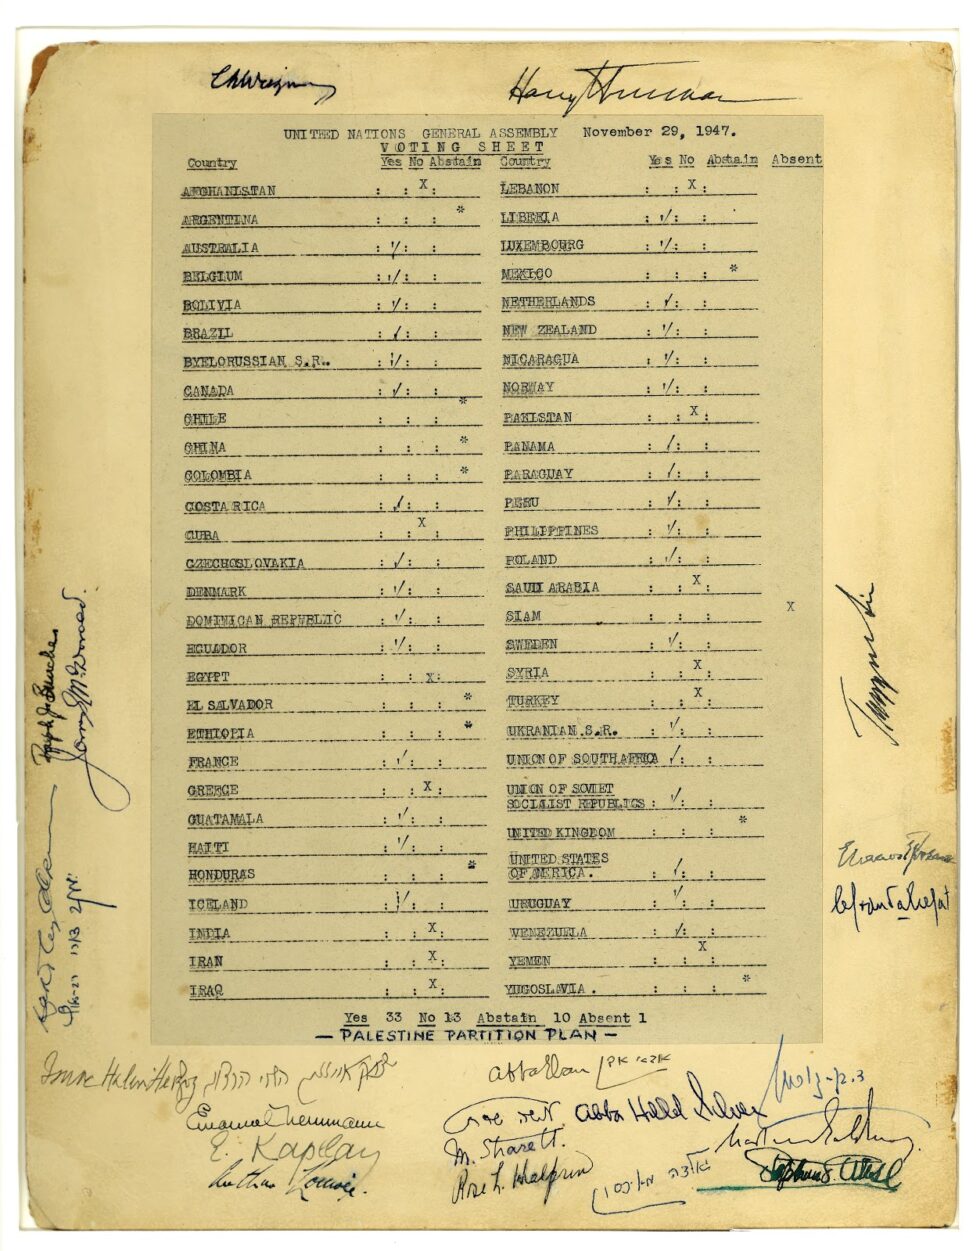 Ch Weizmann Harry Truman
UNITED NATIONS GENERAL ASSEMBLY November 29, 1947.
VOTING SHEET
Country Yes No Abstain Country Yes No Abstain Absent
AFGHANISTAN : : X : LEBANON : : X :
ARGENTINA : : : * LIBERIA : √ : :
AUSTRALIA : √ : : LUXEMBOURG : √ : :
BELGIUM : √ : : MEXICO : : : *
BOLIVIA : √ : : NETHERLANDS : √ : :
BRAZIL : √ : : NEW ZEALAND : √ : :
BYELORUSSIAN S.R.. : √ : : NICARAGUA : √ : :
CANADA : √ : : NORWAY : √ : :
CHILE : : : * PAKISTAN : : X :
CHINA : : : * PANAMA : √ : :
COLOMBIA : : : * PARAGUAY : √ : :
COSTA RICA : √ : : PERU : √ : :
CUBA : : X : PHILIPPINES : √ : :
CZECHOSLOVAKIA : √ : : POLAND : √ : :
DENMARK : √ : : SAUDI ARABIA : : X :
DOMINICAN REPUBLIC : √ : : SIAM : : : X
ECUADOR : √ : : SWEDEN : √ : :
EGYPT : : X : SYRIA : : X :
EL SALVADOR : : : * TURKEY : : X :
ETHIOPIA : : : * UKRANIAN S.R. : √ : :
FRANCE : √ : : UNION OF SOUTH AFRICA √ : :
GREECE : : X : UNION OF SOVIET
SOCIALIST REPUBLICS : √ : :
GUATAMALA : √ : : UNITED KINGDOM : : : *
HAITI : √ : : UNITED STATES
HONDURAS : : : * OF AMERICA. : √ : :
ICELAND : √ : : URUGUAY : √ : :
INDIA : : X : VENEZUELA : √ : :
IRAN : : X : YEMEN : : X :
IRAQ : : X : YUGOSLAVIA . : : : *
Yes 33 No 13 Abstain 10 Absent 1
— PALESTINE PARTITION PLAN —
Trygve Lie
James G. McDonald
Isaac Halevi Herzog
Abba Eban
Emanuel Neumann
משה שרת Abba Hillel Silver
E. Kaplan
M. Sharett.
Rose L. Halprin
Stephen S. Wise